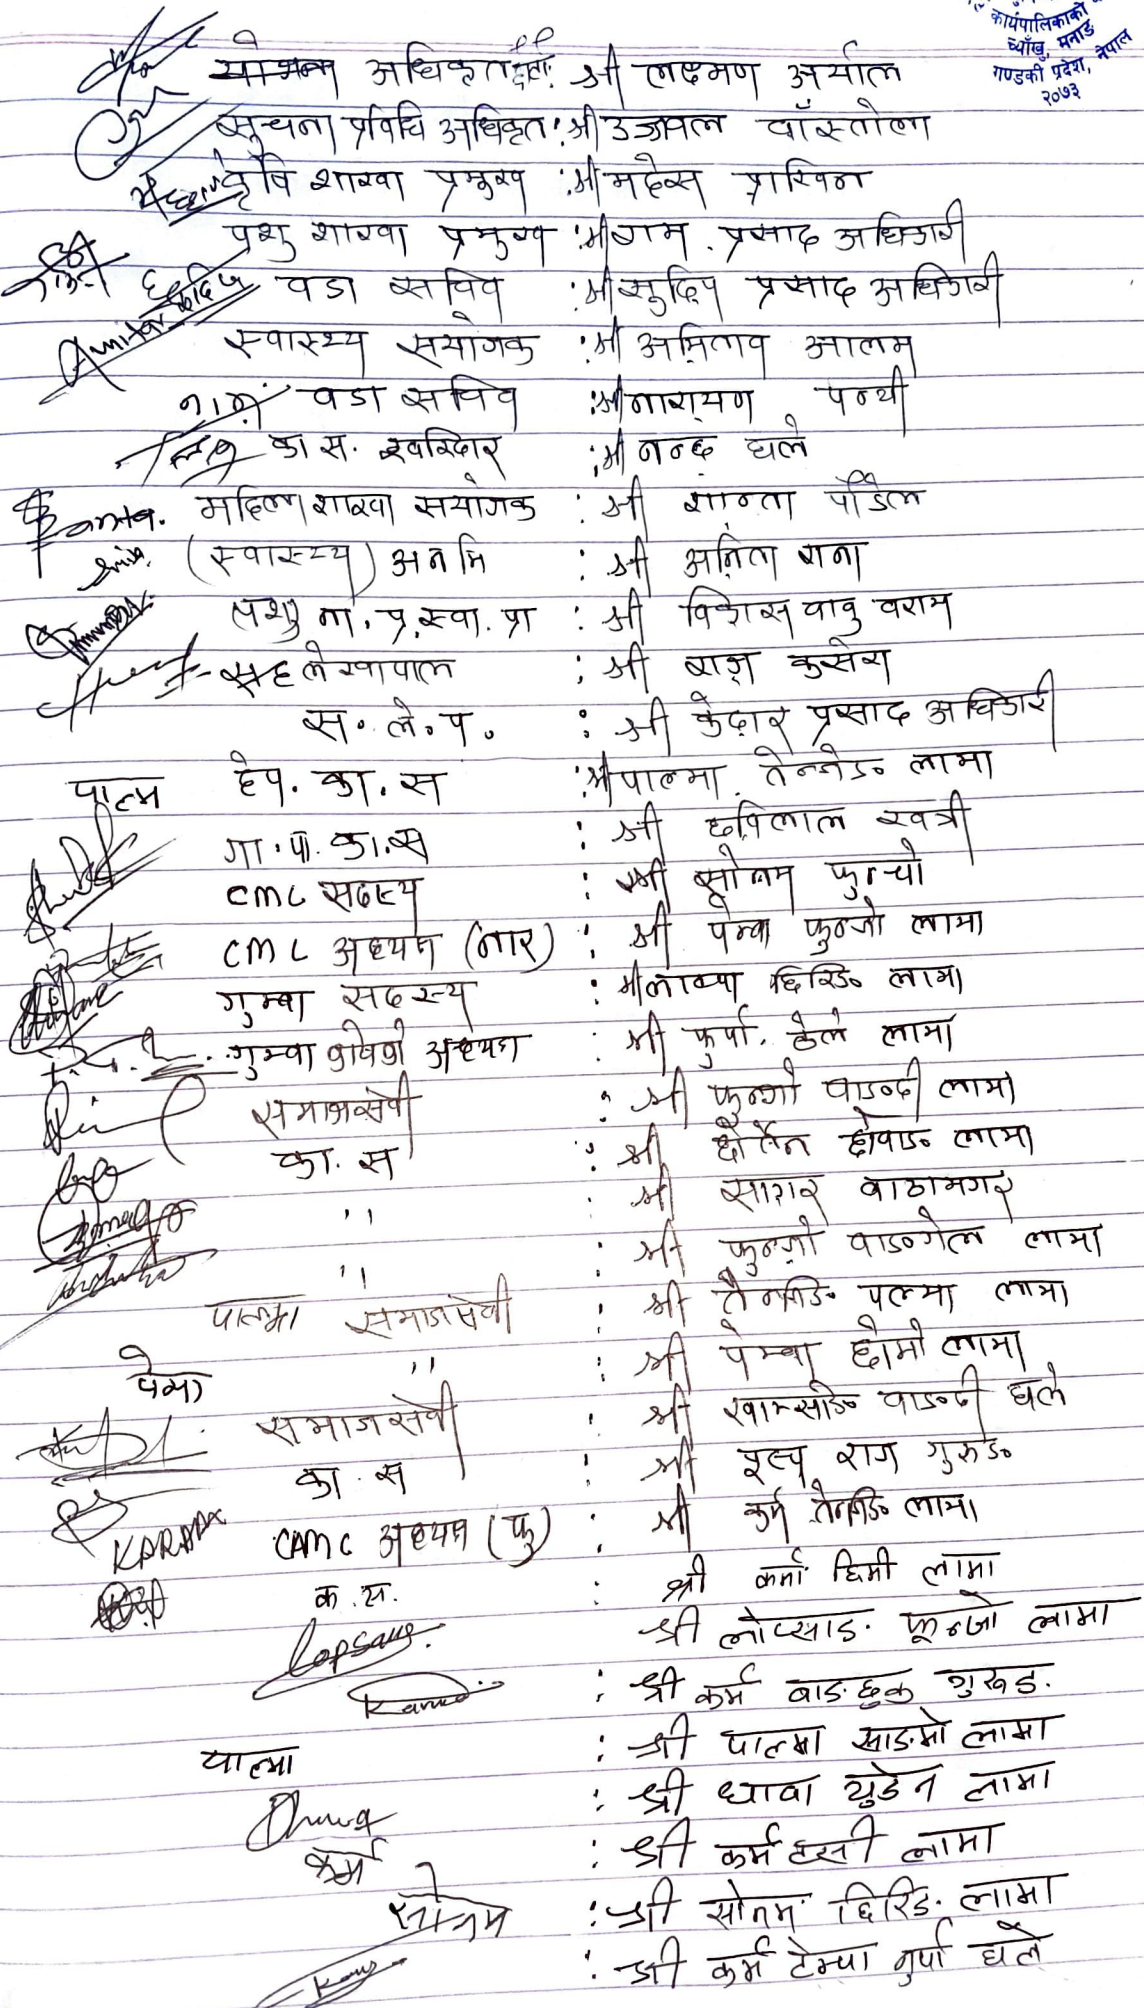 कार्यपालिकाको
च्याँखु, मनाङ
गण्डकी प्रदेश, नेपाल
२०७३
अधिकृत श्री लक्ष्मण अर्याल
सूचना प्रविधि अधिकृत : श्री उज्जवल वाँस्तोला
कृषि शाखा प्रमुख : श्री महेस
पशु शाखा प्रमुख : श्री राम प्रसाद अधिकारी
वडा सचिव : श्री सुदिप प्रसाद अधिकारी
स्वास्थ्य सयोजक : श्री अमिताव आलम
वडा सचिव : श्री नारायण पन्थी
का स. खरिदार : श्री नन्द घले
महिला शाखा सयोजक : श्री शान्ता पौडेल
(स्वास्थ्य) अनमि : श्री अनिता राना
पशु ना. प्र. स्वा. प्रा : श्री विकास वावु वराम
सह लेखापाल : श्री राज कुसेरा
स. ले. प. : श्री केदार प्रसाद अधिकारी
पाल्म हेप. का. स : श्री पाल्मा तेन्जेङ लामा
गा. पा. का. स : श्री छविलाल खत्री
CMC सदस्य : श्री सोनाम फुन्चो
CMC अध्यक्ष (नार) : श्री पेम्बा फुन्जो लामा
गुम्बा सदस्य : श्री लाक्पा छिरिङ लामा
गुम्वा अध्यक्ष : श्री फुर्पा लामा
समाजसेवी : श्री फुन्जो वाङदी लामा
का. स : श्री छोर्तेन लामा
" : श्री सागर
" : श्री फुन्जो वाङगेल लामा
पाल्मा समाजसेवी : श्री पल्मा लामा
पेमा " : श्री पेम्बा छोमो लामा
समाजसेवी : श्री वाङदी घले
का. स : श्री राज गुरुङ
KARMA CAMC अध्यक्ष (फु) : श्री कर्म तेन्जिङ लामा
क. स. : श्री कर्मा छिमी लामा
Lopsang श्री लोप्साङ फून्जो लामा
Karma : श्री कर्म वाङछुक गुरुङ
पाल्मा : श्री पाल्मा साङमो लामा
Dhawa : श्री धावा युडेन लामा
कर्म : श्री कर्म हसी लामा
सोनम : श्री सोनम छिरिङ लामा
: श्री कर्म टेम्पा नुर्पा घले